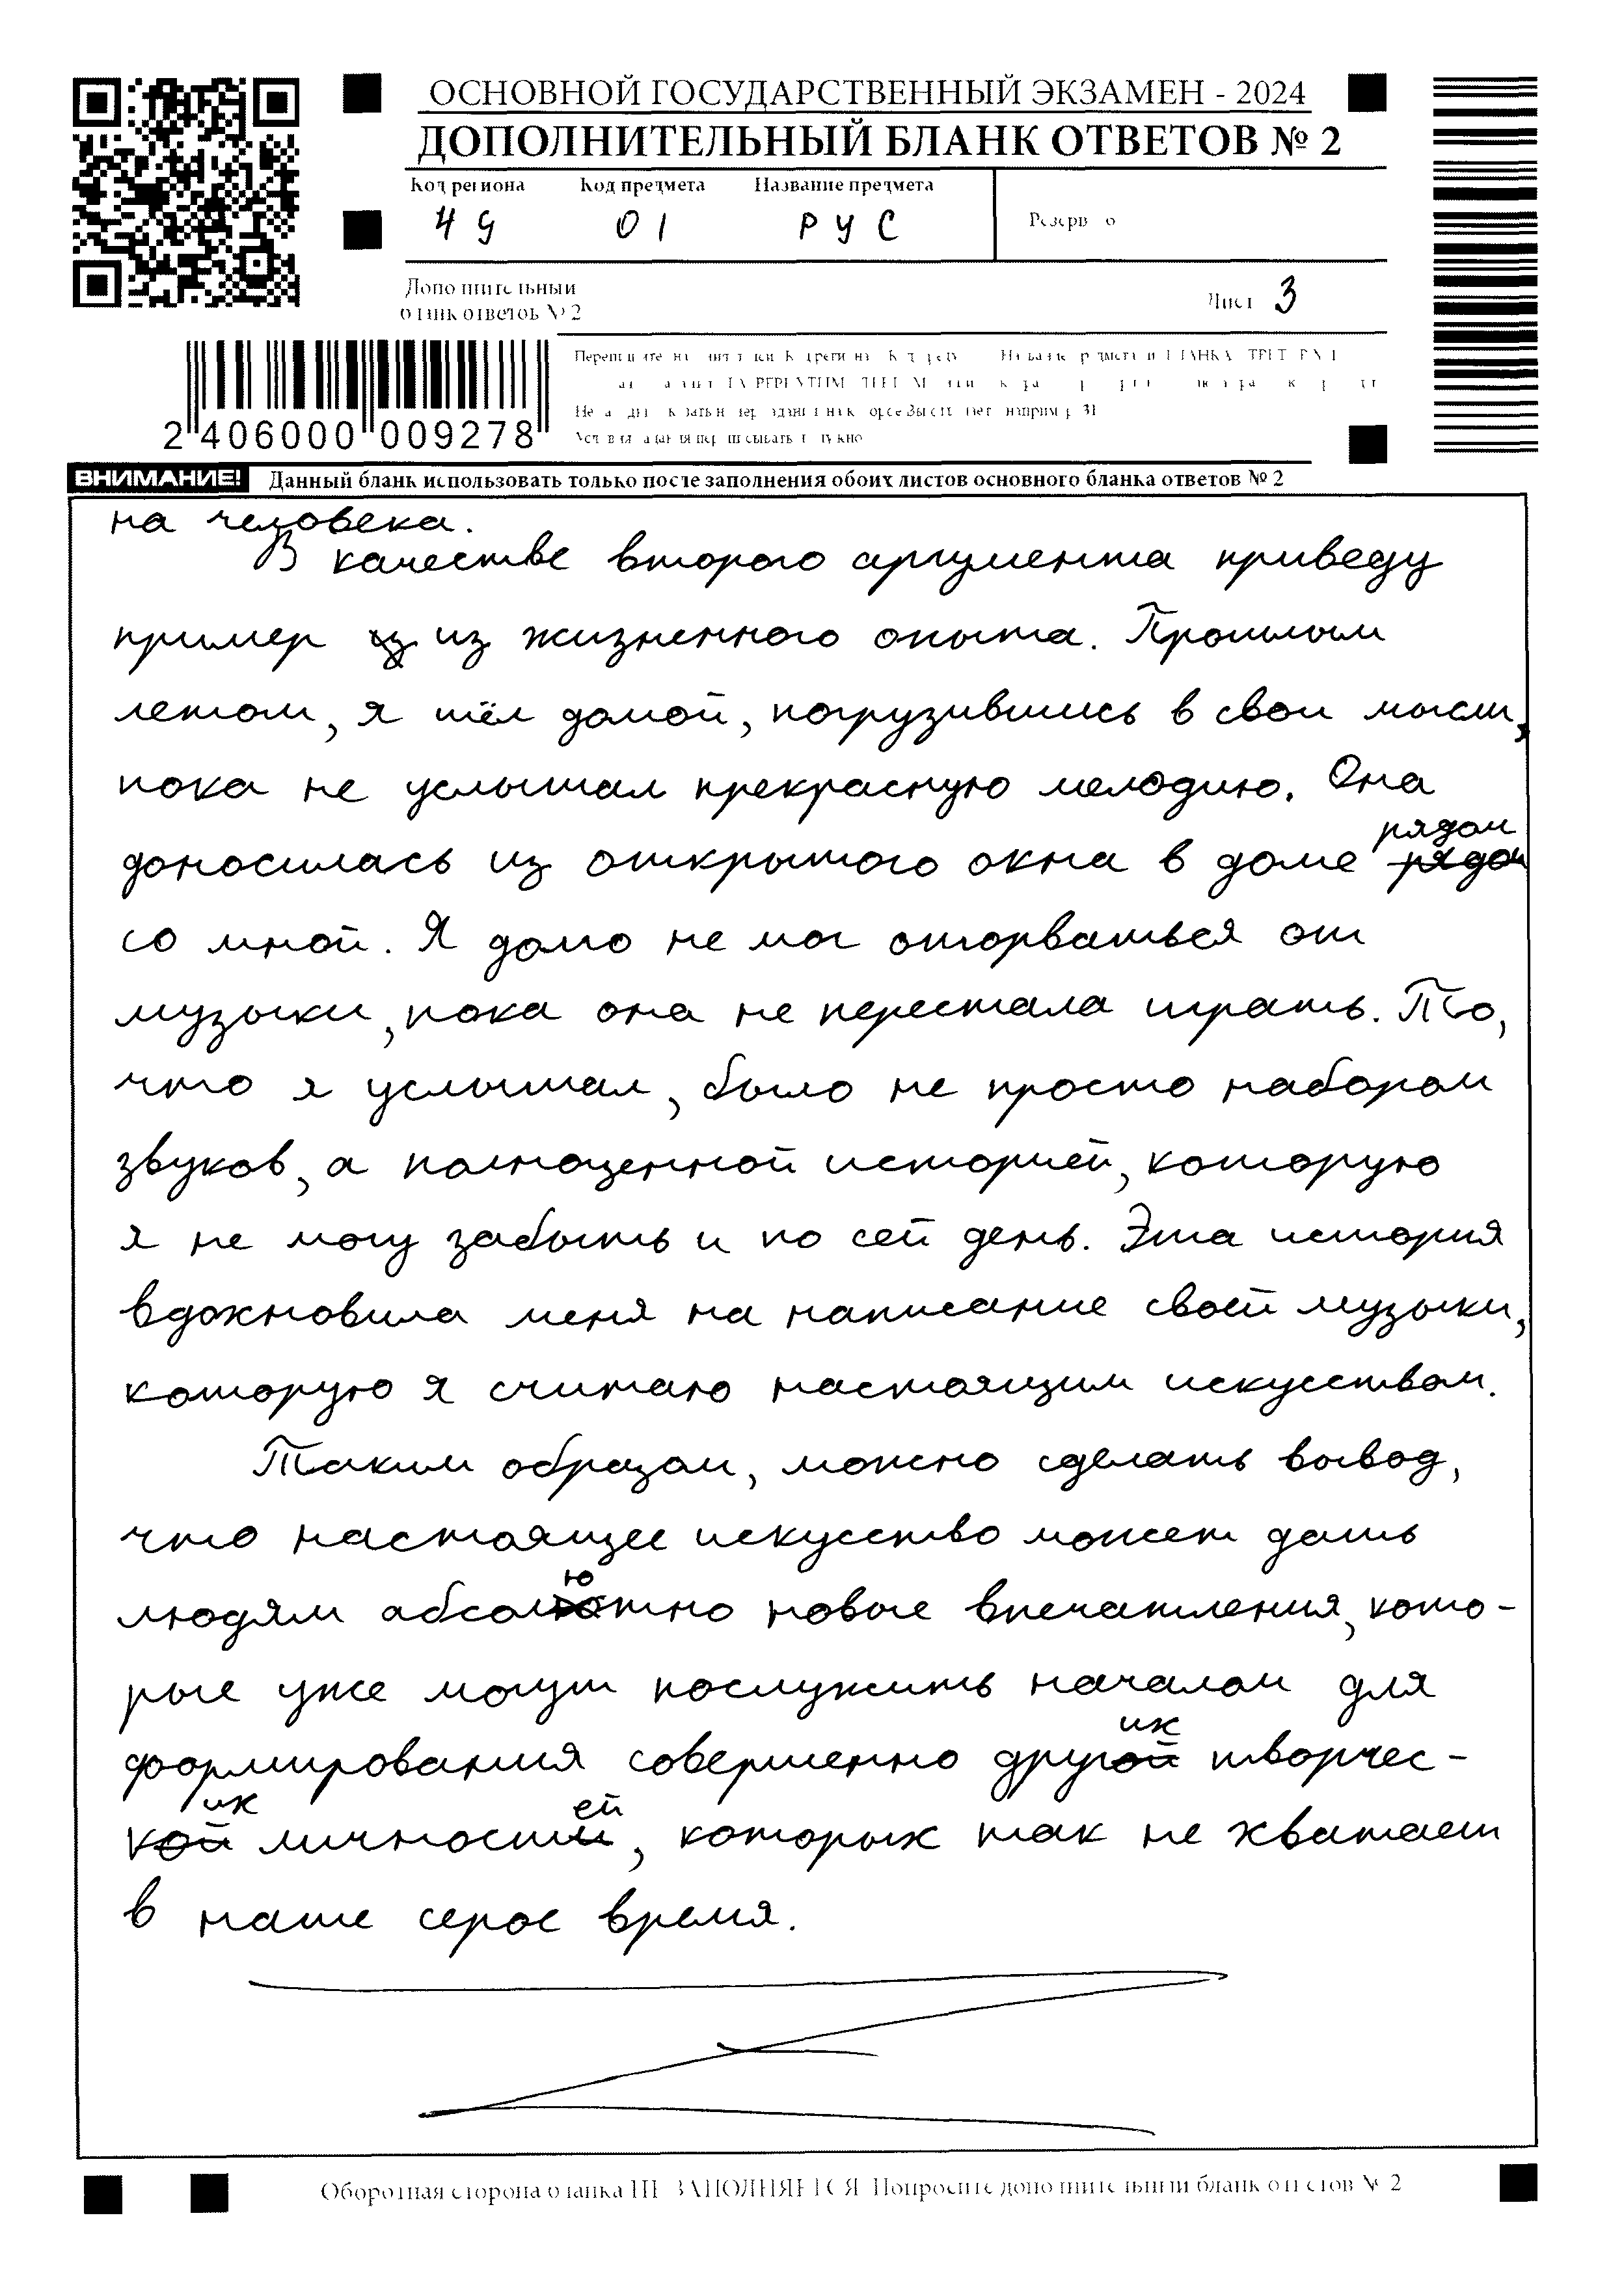 ОСНОВНОЙ ГОСУДАРСТВЕННЫЙ ЭКЗАМЕН - 2024
ДОПОЛНИТЕЛЬНЫЙ БЛАНК ОТВЕТОВ № 2
Код региона Код предмета Название предмета
49 01 РУС
Резерв
Дополнительный
бланк ответов № 2
Лист 3
2 406000 009278
ВНИМАНИЕ! Данный бланк использовать только после заполнения обоих листов основного бланка ответов № 2
на человека.
В качестве второго аргумента приведу
пример из из жизненного опыта. Прошлым
летом, я шёл домой, погрузившись в свои мысли,
пока не услышал прекрасную мелодию. Она
доносилась из открытого окна в доме рядом
со мной. Я долго не мог оторваться от
музыки, пока она не перестала играть. То,
что я услышал, было не просто набором
звуков, а полноценной историей, которую
я не могу забыть и по сей день. Эта история
вдохновила меня на написание своей музыки,
которую я считаю настоящим искусством.
Таким образом, можно сделать вывод,
что настоящее искусство может дать
людям абсолютно новые впечатления, кото-
рые уже могут послужить началом для
формирования совершенно других творчес-
ких личностей, которых так не хватает
в наше серое время.
Оборотная сторона бланка НЕ ЗАПОЛНЯЕТСЯ. Попросите дополнительный бланк ответов № 2